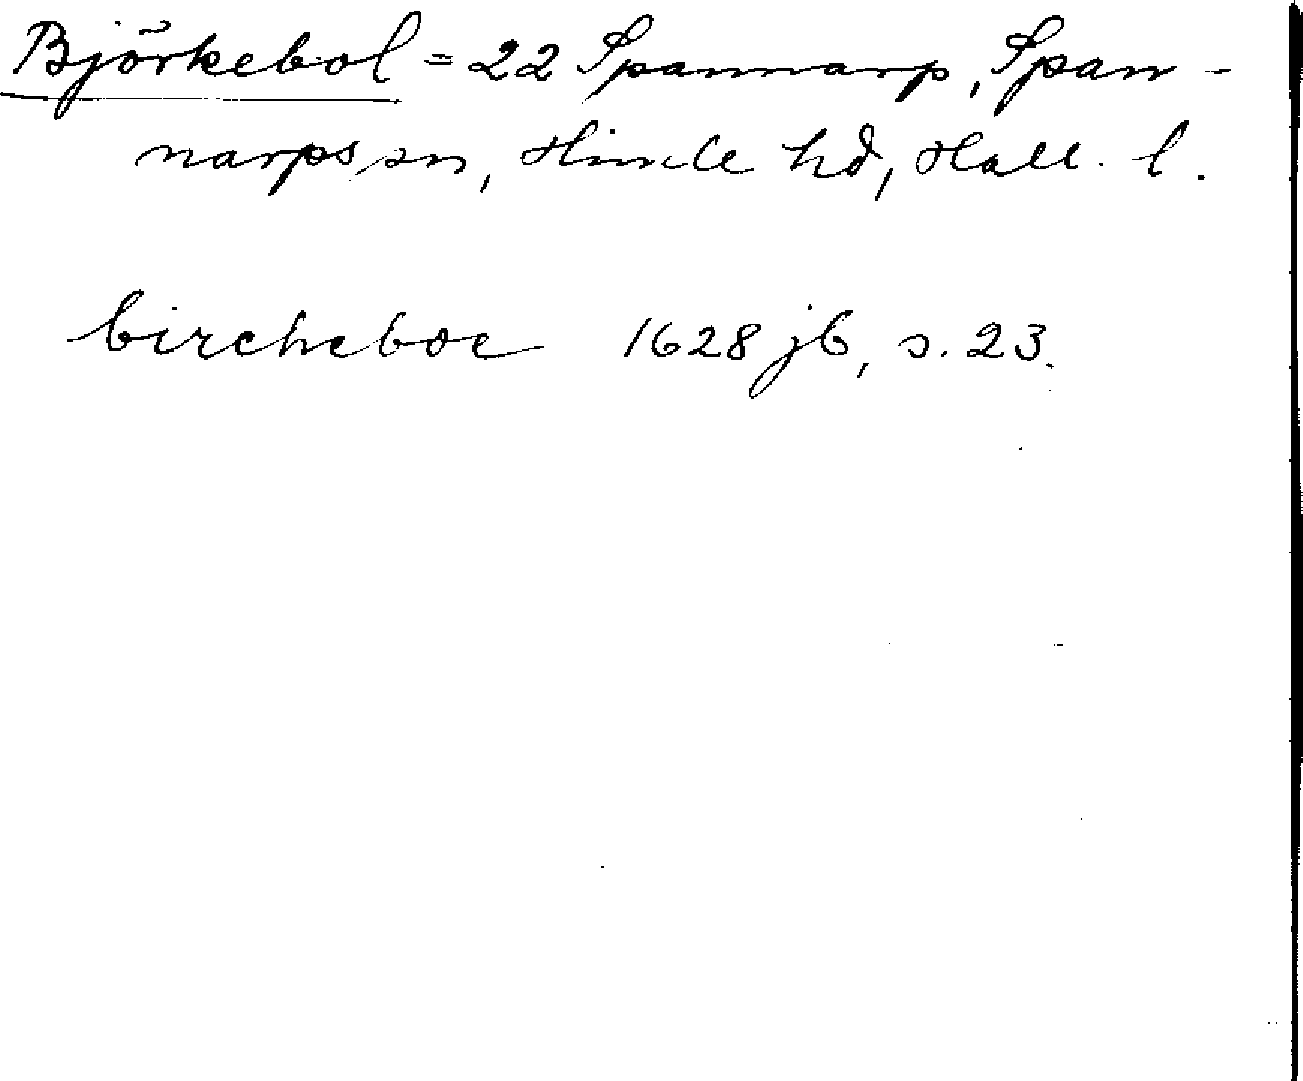 Björkebol = 22 Spannarp, Span-
narps sn, Himle hd, Hall. l.
bircheboe 1628 jb, s. 23.